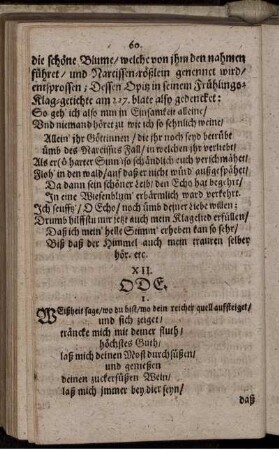 60.
die schöne Blume/ welche von jhm den nahmen
führet/ und Narcissenrößlein genennet wird/
entsprossen; Dessen Opitz in seinem Frühlings-
Klag-getichte am 227. blate also gedencket:
So geh' ich also nun in Einsamkeit alleine/
Und niemand höret zu wie ich so sehnlich weine/
Allein jhr Göttinnen/ die jhr noch seyd betrübt
ümb des Narcissus Fall/ in welchen jhr verliebt/
Als er (ô harter Sinn) so schändlich euch verschmähet/
Floh' in den wald/ auf daß er nicht würd' außgespähet/
Da dann sein schöner Leib/ den Echo hat begehrt/
In eine Wiesenblum' erbärmlich ward verkehrt.
Ich seuffz'/ O Echo/ noch ümb deiner Liebe willen:
Drumb hilffstu mir jetzt auch mein Klagelied erfüllen/
Daß ich mein' helle Stimm' erheben kan so sehr/
Biß daß der Himmel auch mein trauren selber
hör. etc.
XII.
ODE.
1.
WEißheit sage/ wo du bist/ wo dein reicher quell aufsteiget/
und sich zeiget/
träncke mich mit deiner fluth/
höchstes Guth/
laß mich deinen Most durchsüßen/
und genießen
deinen zuckersüßen Wein/
laß mich jmmer bey dier seyn/
daß